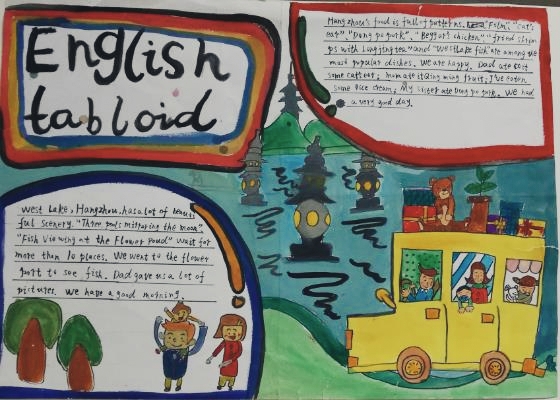 English
tabloid
Hangzhou's food is full of patterns. "Cat's
ear", "Dong po pork", "Beggars chicken", "fried shrim
ps with Longjing tea" and "West lake fish" are among the
most popular dishes. We are happy. Dad ate
some catsear; mom ate Qing ming fruit; I've eaten
some rice cream; My sister ate Dong po pork. We had
a very good day.
West Lake, Hangzhou, has a lot of beauti
ful scenery. "Three pools mirroring the moon"
"Fish Viewing at the Flower Pond" wait for
more than 10 places. We went to the flower
port to see fish. Dad gave us a lot of
pictures. We have a good morning.